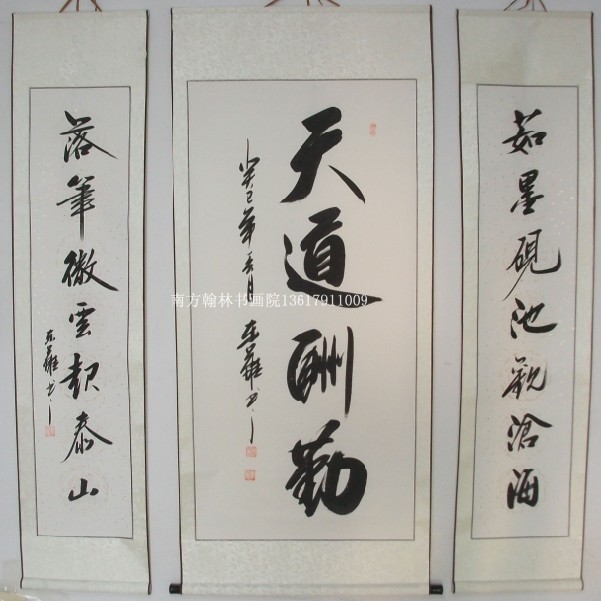 茹墨砚池觀滄海
天道酬勤
癸巳年春月
東羅书
落筆微雲起泰山
東羅书
南方翰林书画院13617911009